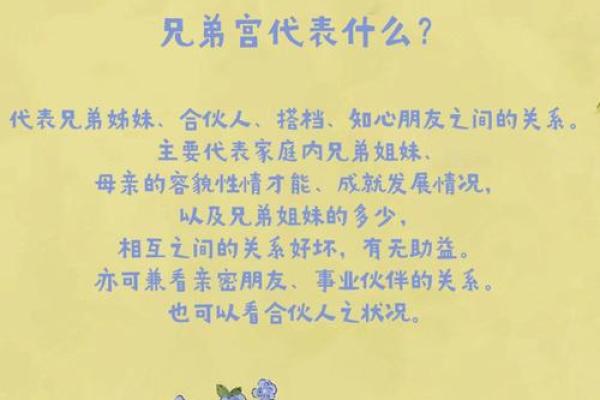 兄弟宫代表什么?
代表兄弟姊妹、合伙人、搭档、知心朋友之间的关系。
主要代表家庭内兄弟姐妹、
母亲的容貌性情才能、成就发展情况，
以及兄弟姐妹的多少，
相互之间的关系好坏，有无助益。
亦可兼看亲密朋友、事业伙伴的关系。
也可以看合伙人之状况。